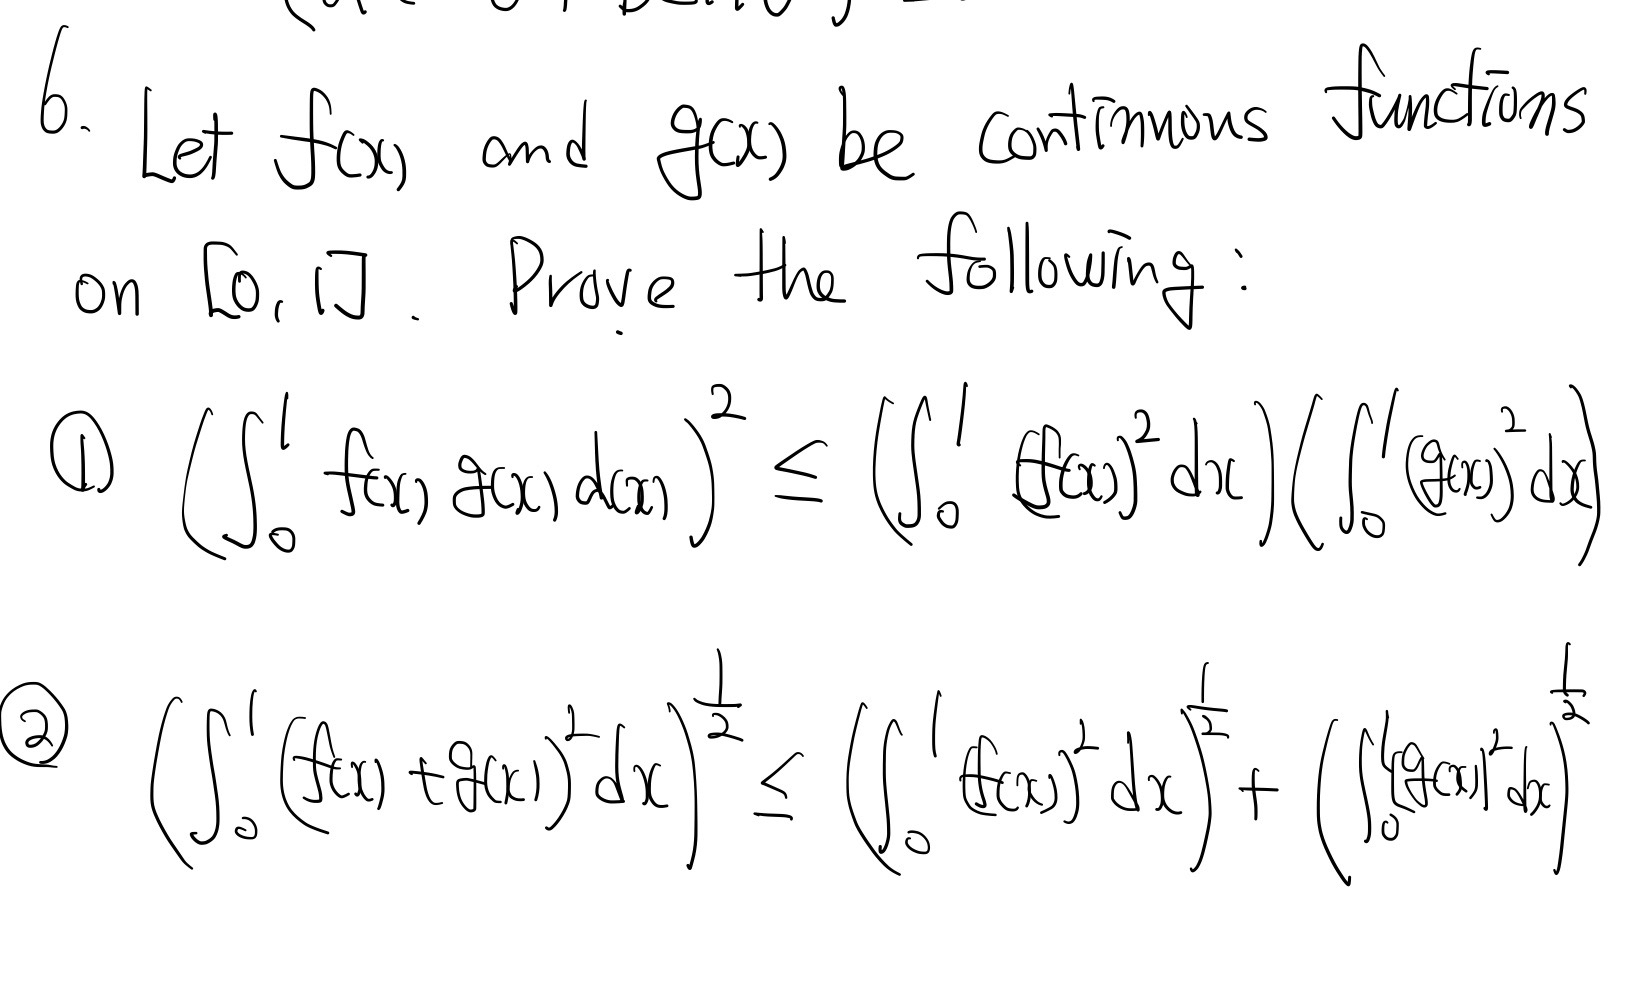 6. Let f(x) and g(x) be continuous functions
on [0, 1]. Prove the following:
① (∫₀¹ f(x) g(x) d(x))² ≤ (∫₀¹ (f(x))² dx)(∫₀¹ (g(x))² dx)
② (∫₀¹ (f(x) + g(x))² dx)^(1/2) ≤ (∫₀¹ (f(x))² dx)^(1/2) + (∫₀¹ (g(x))² dx)^(1/2)